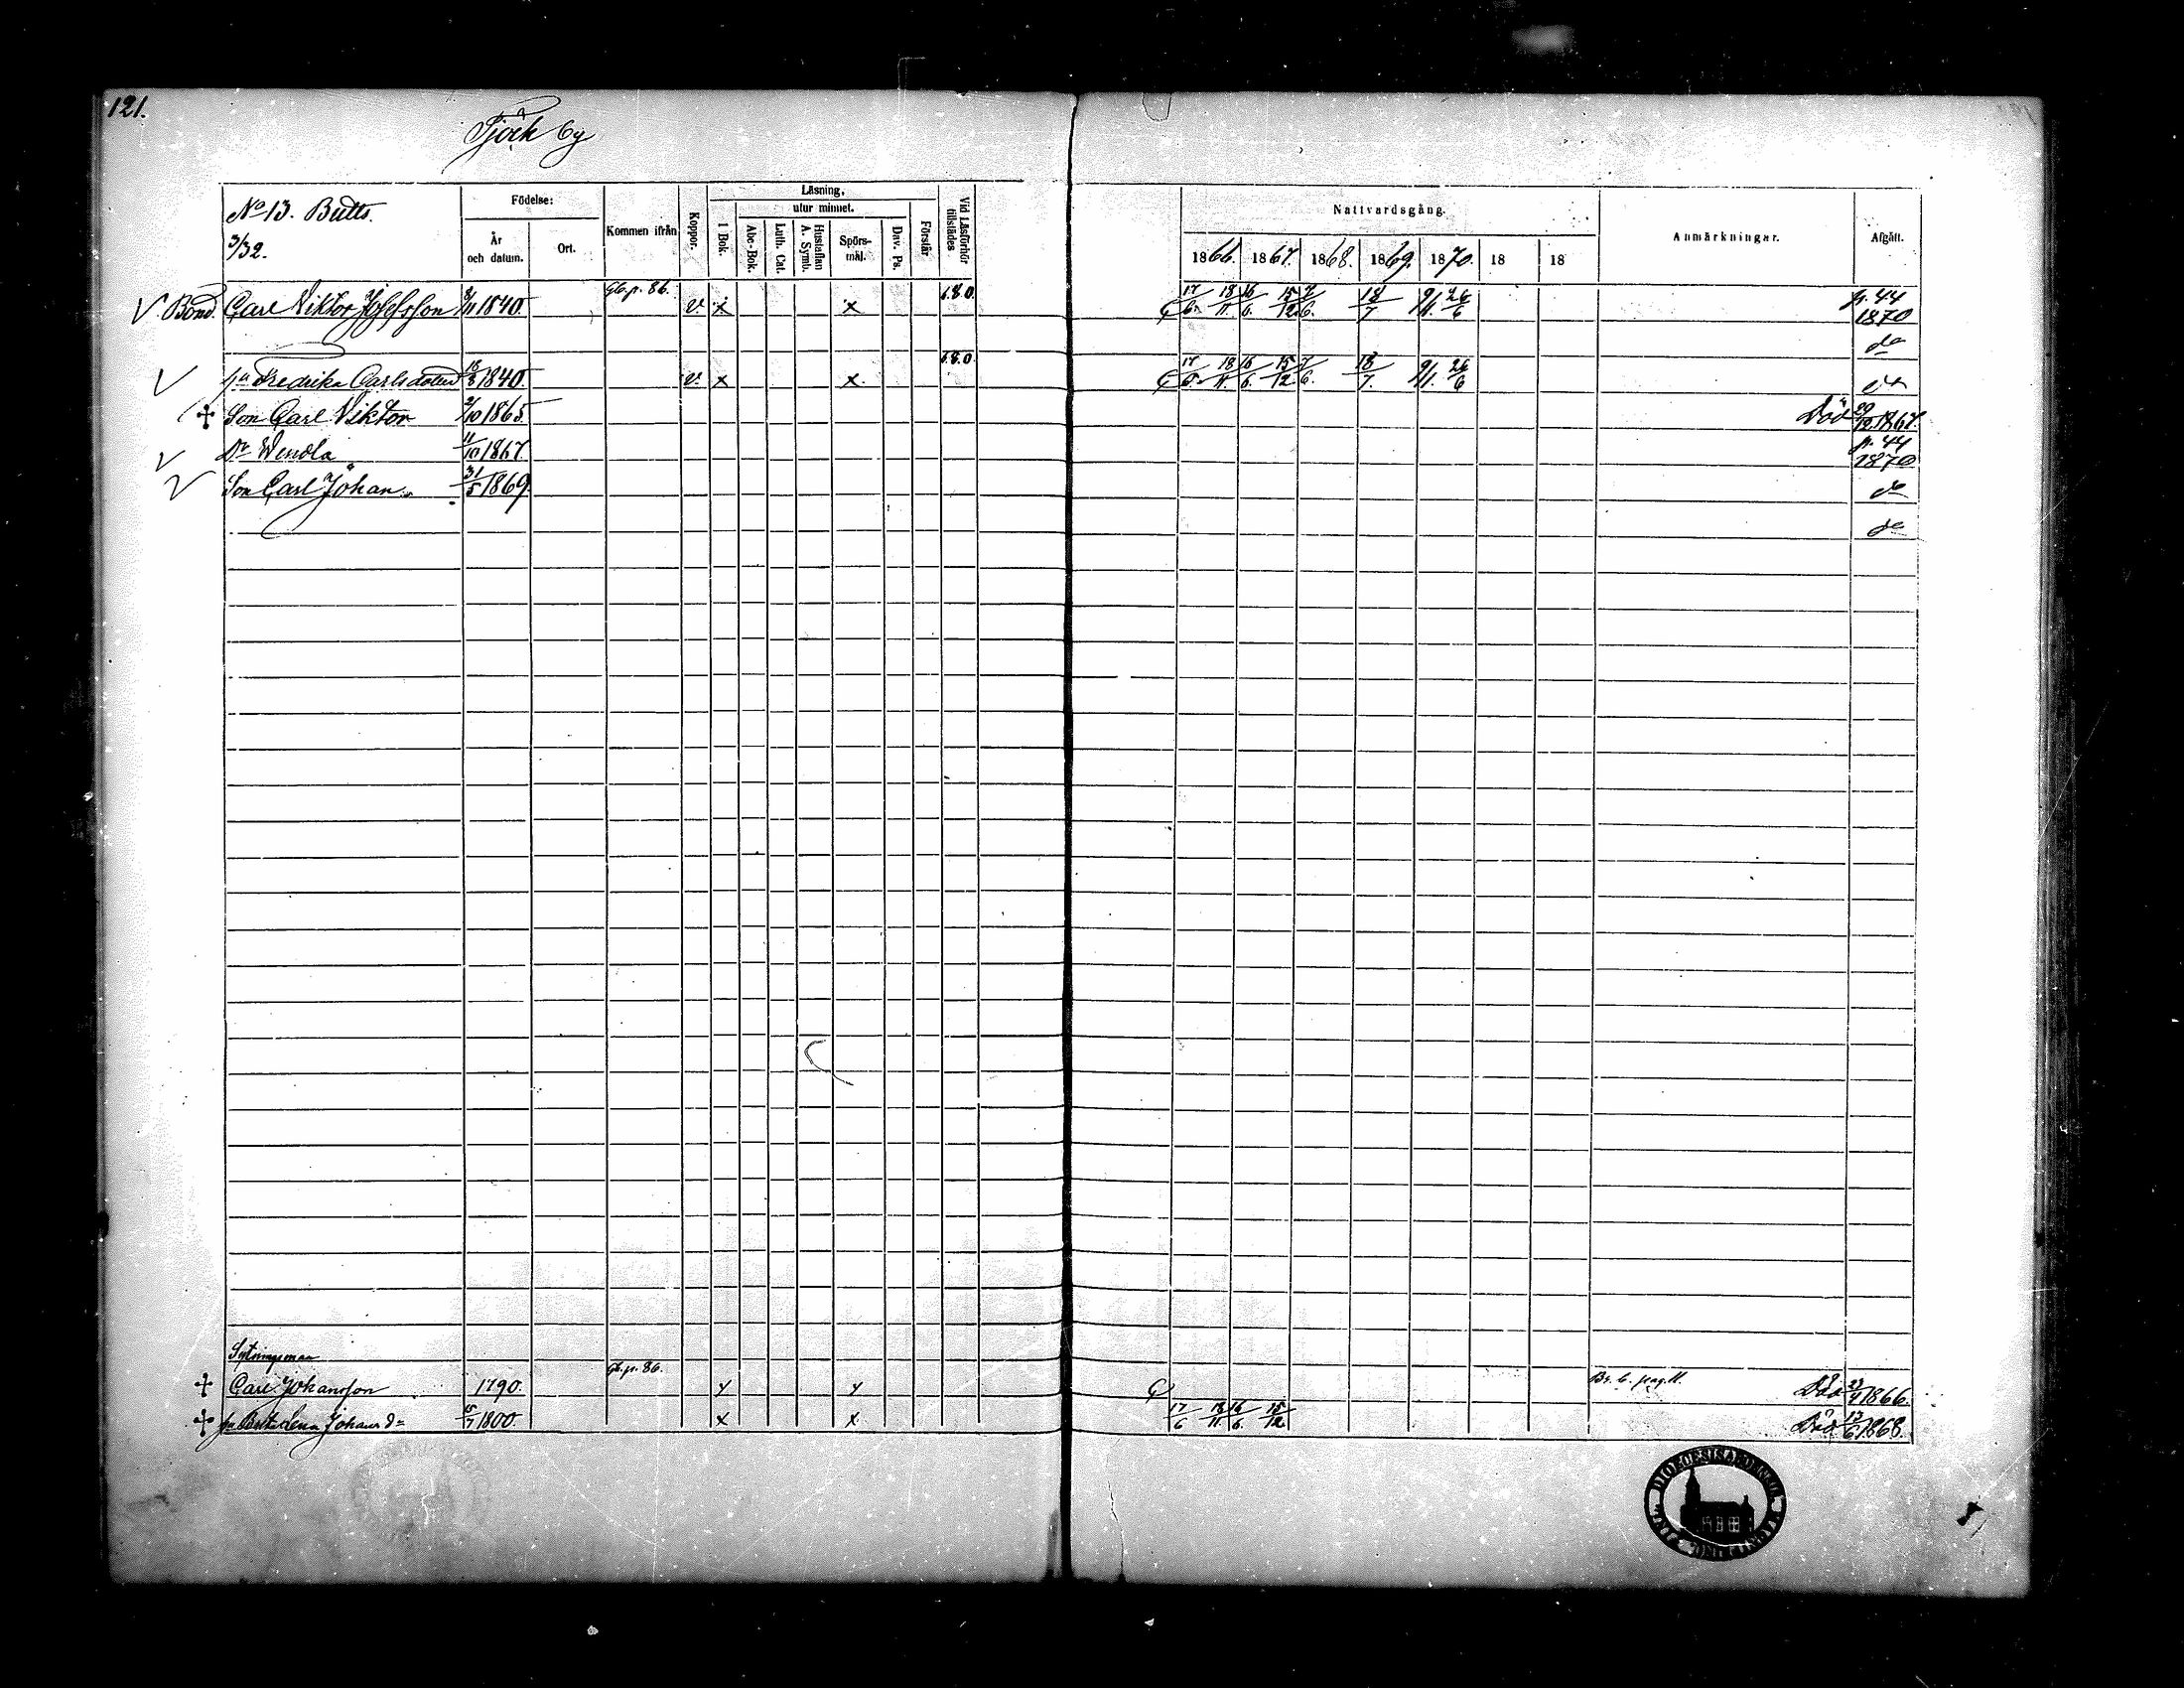 121.
Tjörk by
No 13. Butts.
3/32.
Födelse:
År och datum.
Ort.
Kommen ifrån
Koppor.
Läsning,
I Bok.
utur minnet.
Abc-Bok.
Luth. Cat.
Hustaflan A. Symb.
Spörs-mål.
Dav. Ps.
Förstår
Vid Läsförhör tillstädes
Nattvardsgång.
1866. 1867. 1868. 1869. 1870. 18 18
Anmärkningar.
Afgått.
Bond. Carl Viktor Josefsson /11 1840. Gb. p. 86. v. x x 6.8.0. 17/6. 18/11. 16/6. 15/12. 7/6. 18/7 9/11. 26/6 p. 44 1870
do
Fredrika Carlsdotter 18/8 1840. v. x x. 6.8.0 17/6. 18/11. 16/6. 15/12. 7/6. 18/7. 9/11. 26/6 do
Son Carl Viktor 2/10 1865 Död 29/12 1867.
Dr Wendla 11/10 1867. p. 44 1870
Son Carl Johan 31/5 1869 do
do
Sytningsman
Carl Johansson 1790. Gb. p. 86. Död 1866.
Lena Johans dr 15/7 1800. x x 17/6 18/11. 16/6. 15/12. Död 13/6 1868.